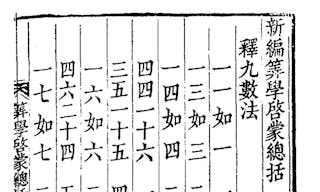 新編筭學啓蒙總括
釋九數法
一一如一
一三如三
一四如四
四四一十六
三五一十五
一六如六
四六二十四
一七如七
筭學啓蒙總